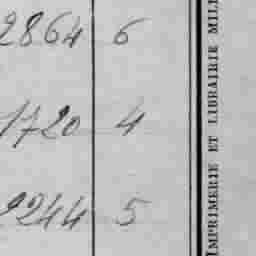 2864 6
1720 4
2244 5
IMPRIMERIE ET LIBRAIRIE MIL